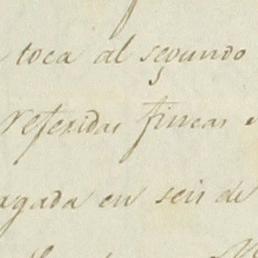 toca al segundo
referidas fincas
agada en seis de